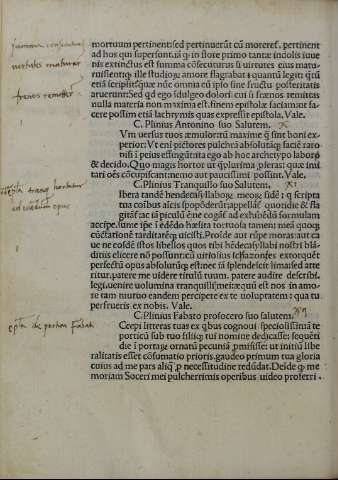 mortuum pertinent: sed pertinuerūt cū moreret᷑. pertinent
ad hos qui supersunt. iā ꝗ in flore primo tantæ indolis iuue
nis extinctus est summa cōsecuturus si uirtutes eius matu-
ruissent. quo ille studioꝝ amore flagrabat: quantū legit: ꝗtū
etiā scripsit: quæ nūc omnia cū ipso sine fructu posteritatis
aruerunt. Sed qd ego īdulgeo dolori cui si frænos remittas
nulla materia non maxima est. finem epistolæ faciam: ut fa-
cere possim etiā lachrymis quas expressit epistola. Vale.
C. Plinius Antonino suo Salutem. x
Vm uersus tuos æmulor: tū maxime ꝗ sint boni ex-
perior: Vt eni pictores pulchrā absolutāqꝫ faciē raro
nisi ī peius effingūt: ita ego ab hoc archetypo labor
& decido. Quo magis hortor ut ꝗplurima pferas: quæ imi
tari oēs cōcupiscant: nemo aut paucissimi possint. Vale.
C. Plinius Tranquillo suo Salutem. xi
Ibera tandē hendecasyllaboꝝ meoꝝ fidē: ꝗ scripta
tua cōibus aīcis spopōderūt: appellāt᷑ quotidie & fla
gitāt᷑: ac iā piculū ē ne cogāt᷑ ad exhibēdū formulam
accipe. sum & ipe ī edēdo hæsitator: tu tamen meā quoqꝫ
cūctationē tarditatēqꝫ uicisti. Proīde aut rūpe moras: aut ca
ue ne eosdē istos libellos quos tibi hēdecasyllabi nostri blā-
ditiis elicere nō possunt: cū uitiosius scazontes extorqueāt
perfectū opus absolutūqꝫ est: nec iā splendescit lima: sed atte
ritur. patere me uidere titulū tuum. patere audire describi.
legi. uenire uolumina tranquilli mei: æquū est nos in amo-
re tam mutuo eandem percipere ex te uoluptatem: qua tu
perfrueris ex nobis. Vale.
C. Plinius Fabato prosocero suo salutem.
Cepi litteras tuas ex qbus cognoui speciosissimā te
porticū sub tuo filiiqꝫ tui nomine dedicasse: sequēti
die ī portaꝝ ornatū pecuniā pmisisse: ut initiū libe
ralitatis esset cōsumatio prioris. gaudeo primum tua gloria
cuius ad me pars aliq p necessitudine redūdat. Deīde ꝗ me
moriam Soceri mei pulcherrimis operibus uideo proferri.